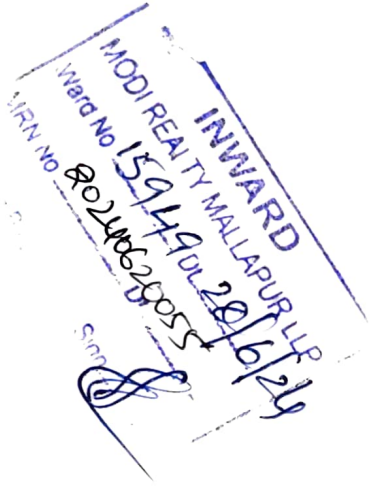 INWARD
MODI REALTY MALLAPUR LLP
Ward No 15949 Dt 28/6/24
MRN No 20240620055 Dt
Sign